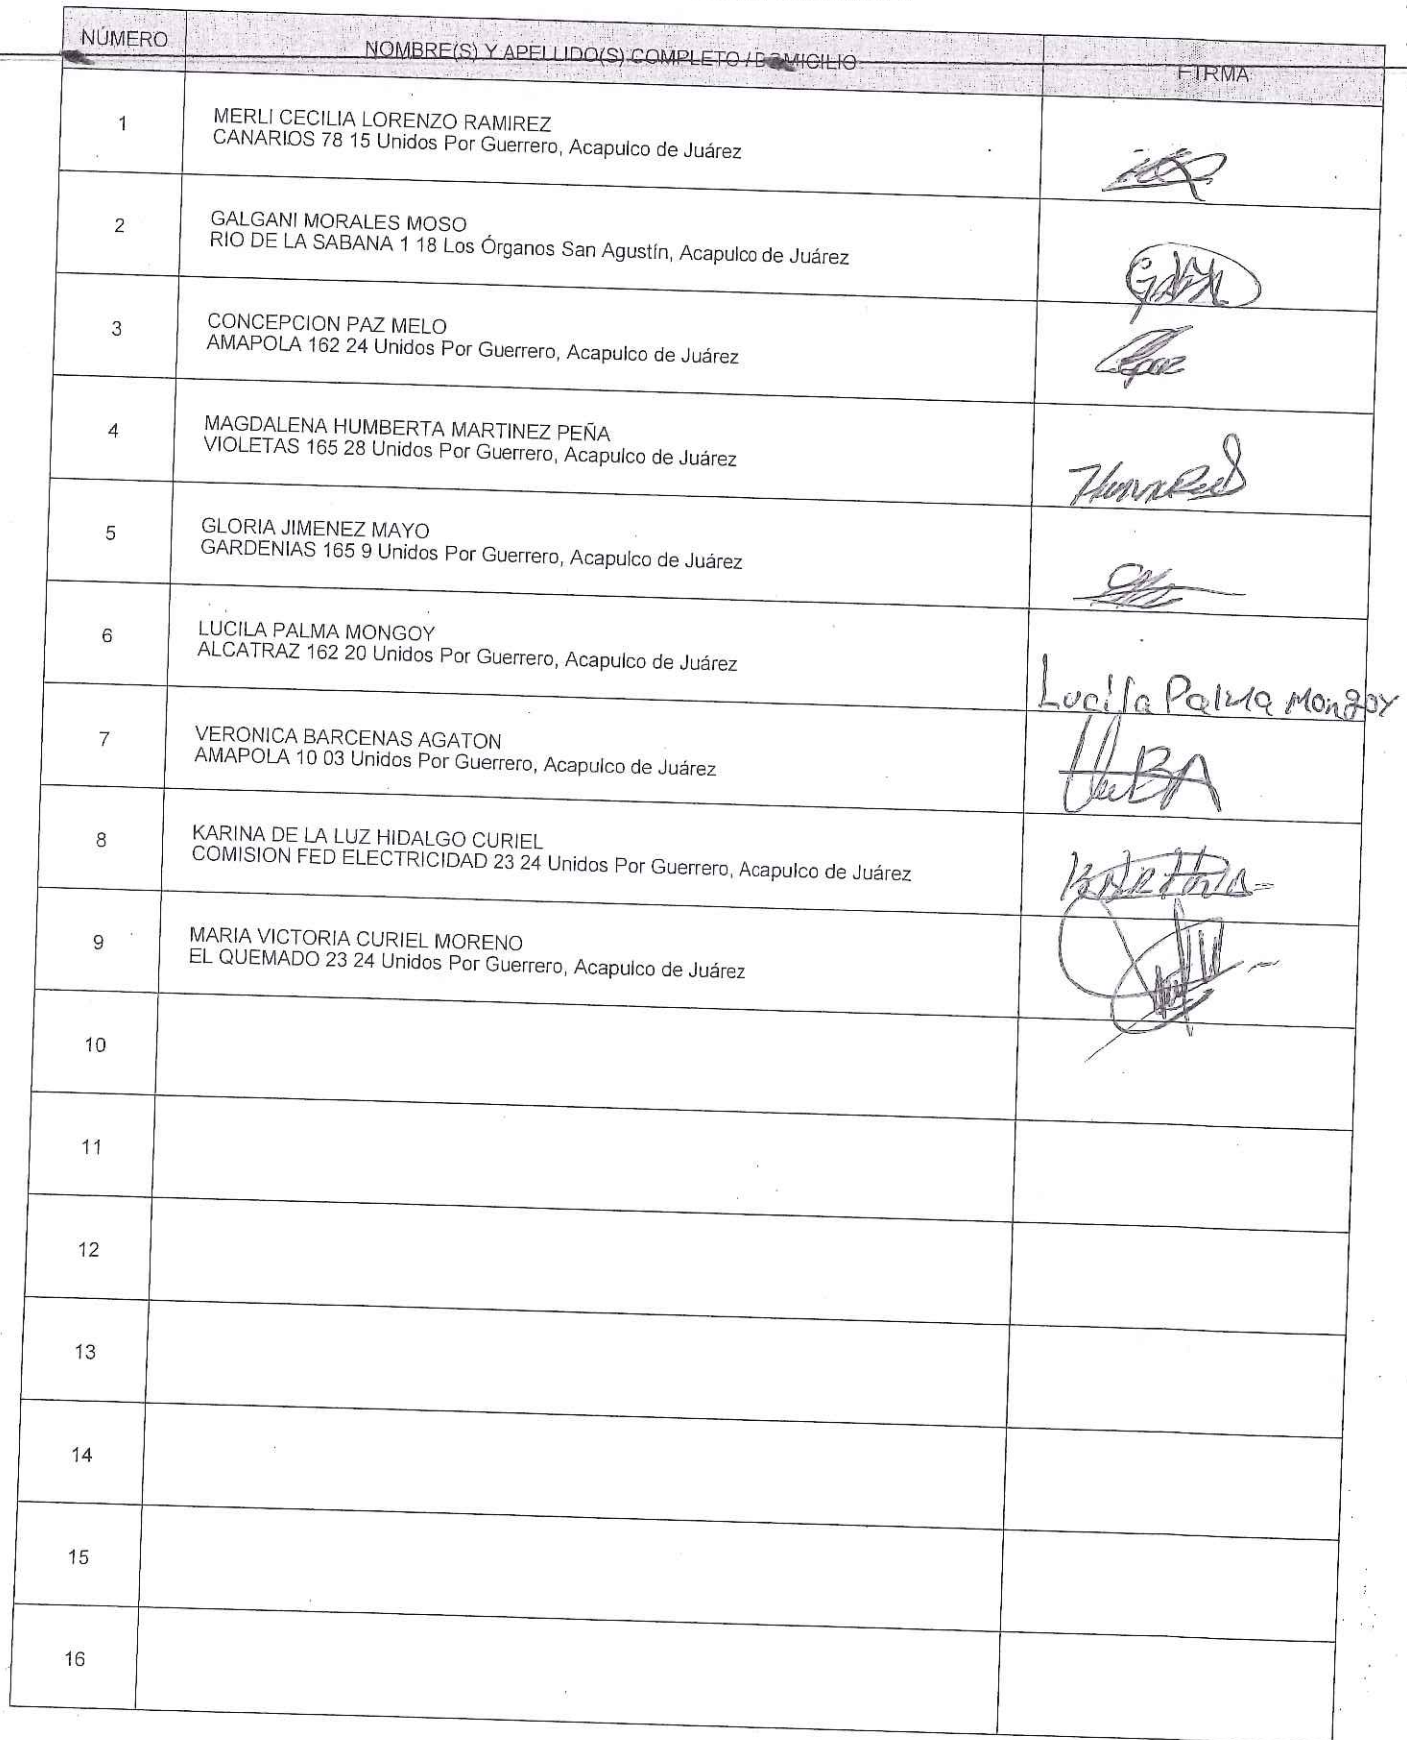 NÚMERO NOMBRE(S) Y APELLIDO(S) COMPLETO / DOMICILIO FIRMA
1 MERLI CECILIA LORENZO RAMIREZ
CANARIOS 78 15 Unidos Por Guerrero, Acapulco de Juárez
2 GALGANI MORALES MOSO
RIO DE LA SABANA 1 18 Los Órganos San Agustín, Acapulco de Juárez
3 CONCEPCION PAZ MELO
AMAPOLA 162 24 Unidos Por Guerrero, Acapulco de Juárez
4 MAGDALENA HUMBERTA MARTINEZ PEÑA
VIOLETAS 165 28 Unidos Por Guerrero, Acapulco de Juárez
5 GLORIA JIMENEZ MAYO
GARDENIAS 165 9 Unidos Por Guerrero, Acapulco de Juárez
6 LUCILA PALMA MONGOY
ALCATRAZ 162 20 Unidos Por Guerrero, Acapulco de Juárez
Lucila Palma Mongoy
7 VERONICA BARCENAS AGATON
AMAPOLA 10 03 Unidos Por Guerrero, Acapulco de Juárez
8 KARINA DE LA LUZ HIDALGO CURIEL
COMISION FED ELECTRICIDAD 23 24 Unidos Por Guerrero, Acapulco de Juárez
9 MARIA VICTORIA CURIEL MORENO
EL QUEMADO 23 24 Unidos Por Guerrero, Acapulco de Juárez
10
11
12
13
14
15
16